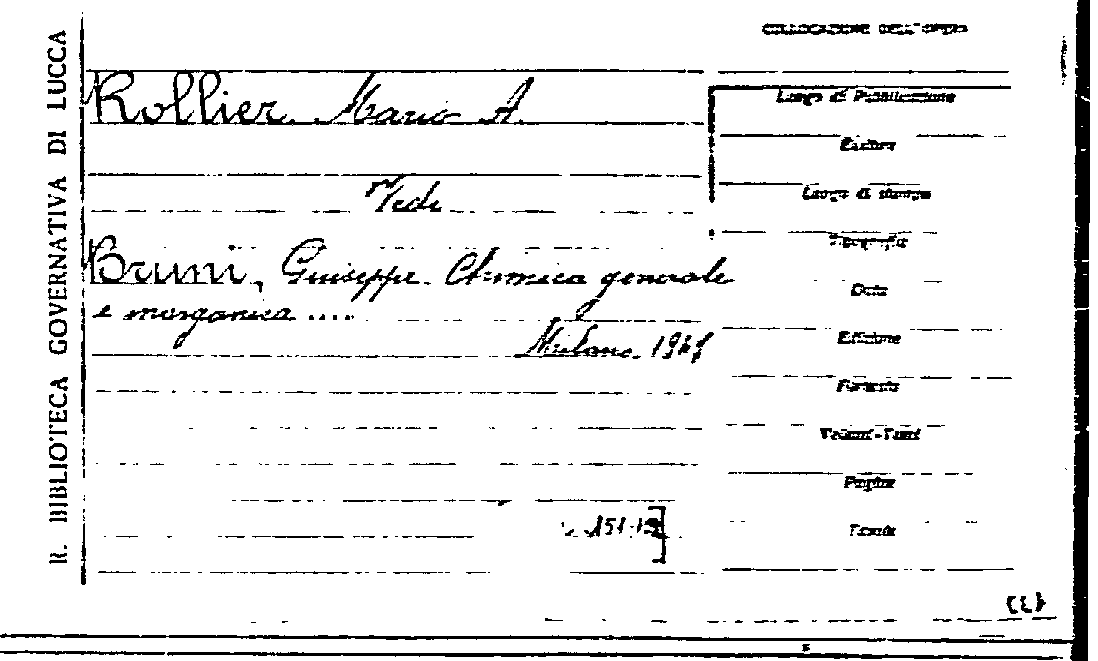 R. BIBLIOTECA GOVERNATIVA DI LUCCA
COLLOCAZIONE DELL'OPERA
Rollier Mario A.
Vedi
Bruni, Giuseppe. Chimica generale
e inorganica ....
Milano.
Luogo di Pubblicazione
Editore
Luogo di stampa
Tipografia
Data
Edizione
Formato
Volumi-Tomi
Pagine
Tavole